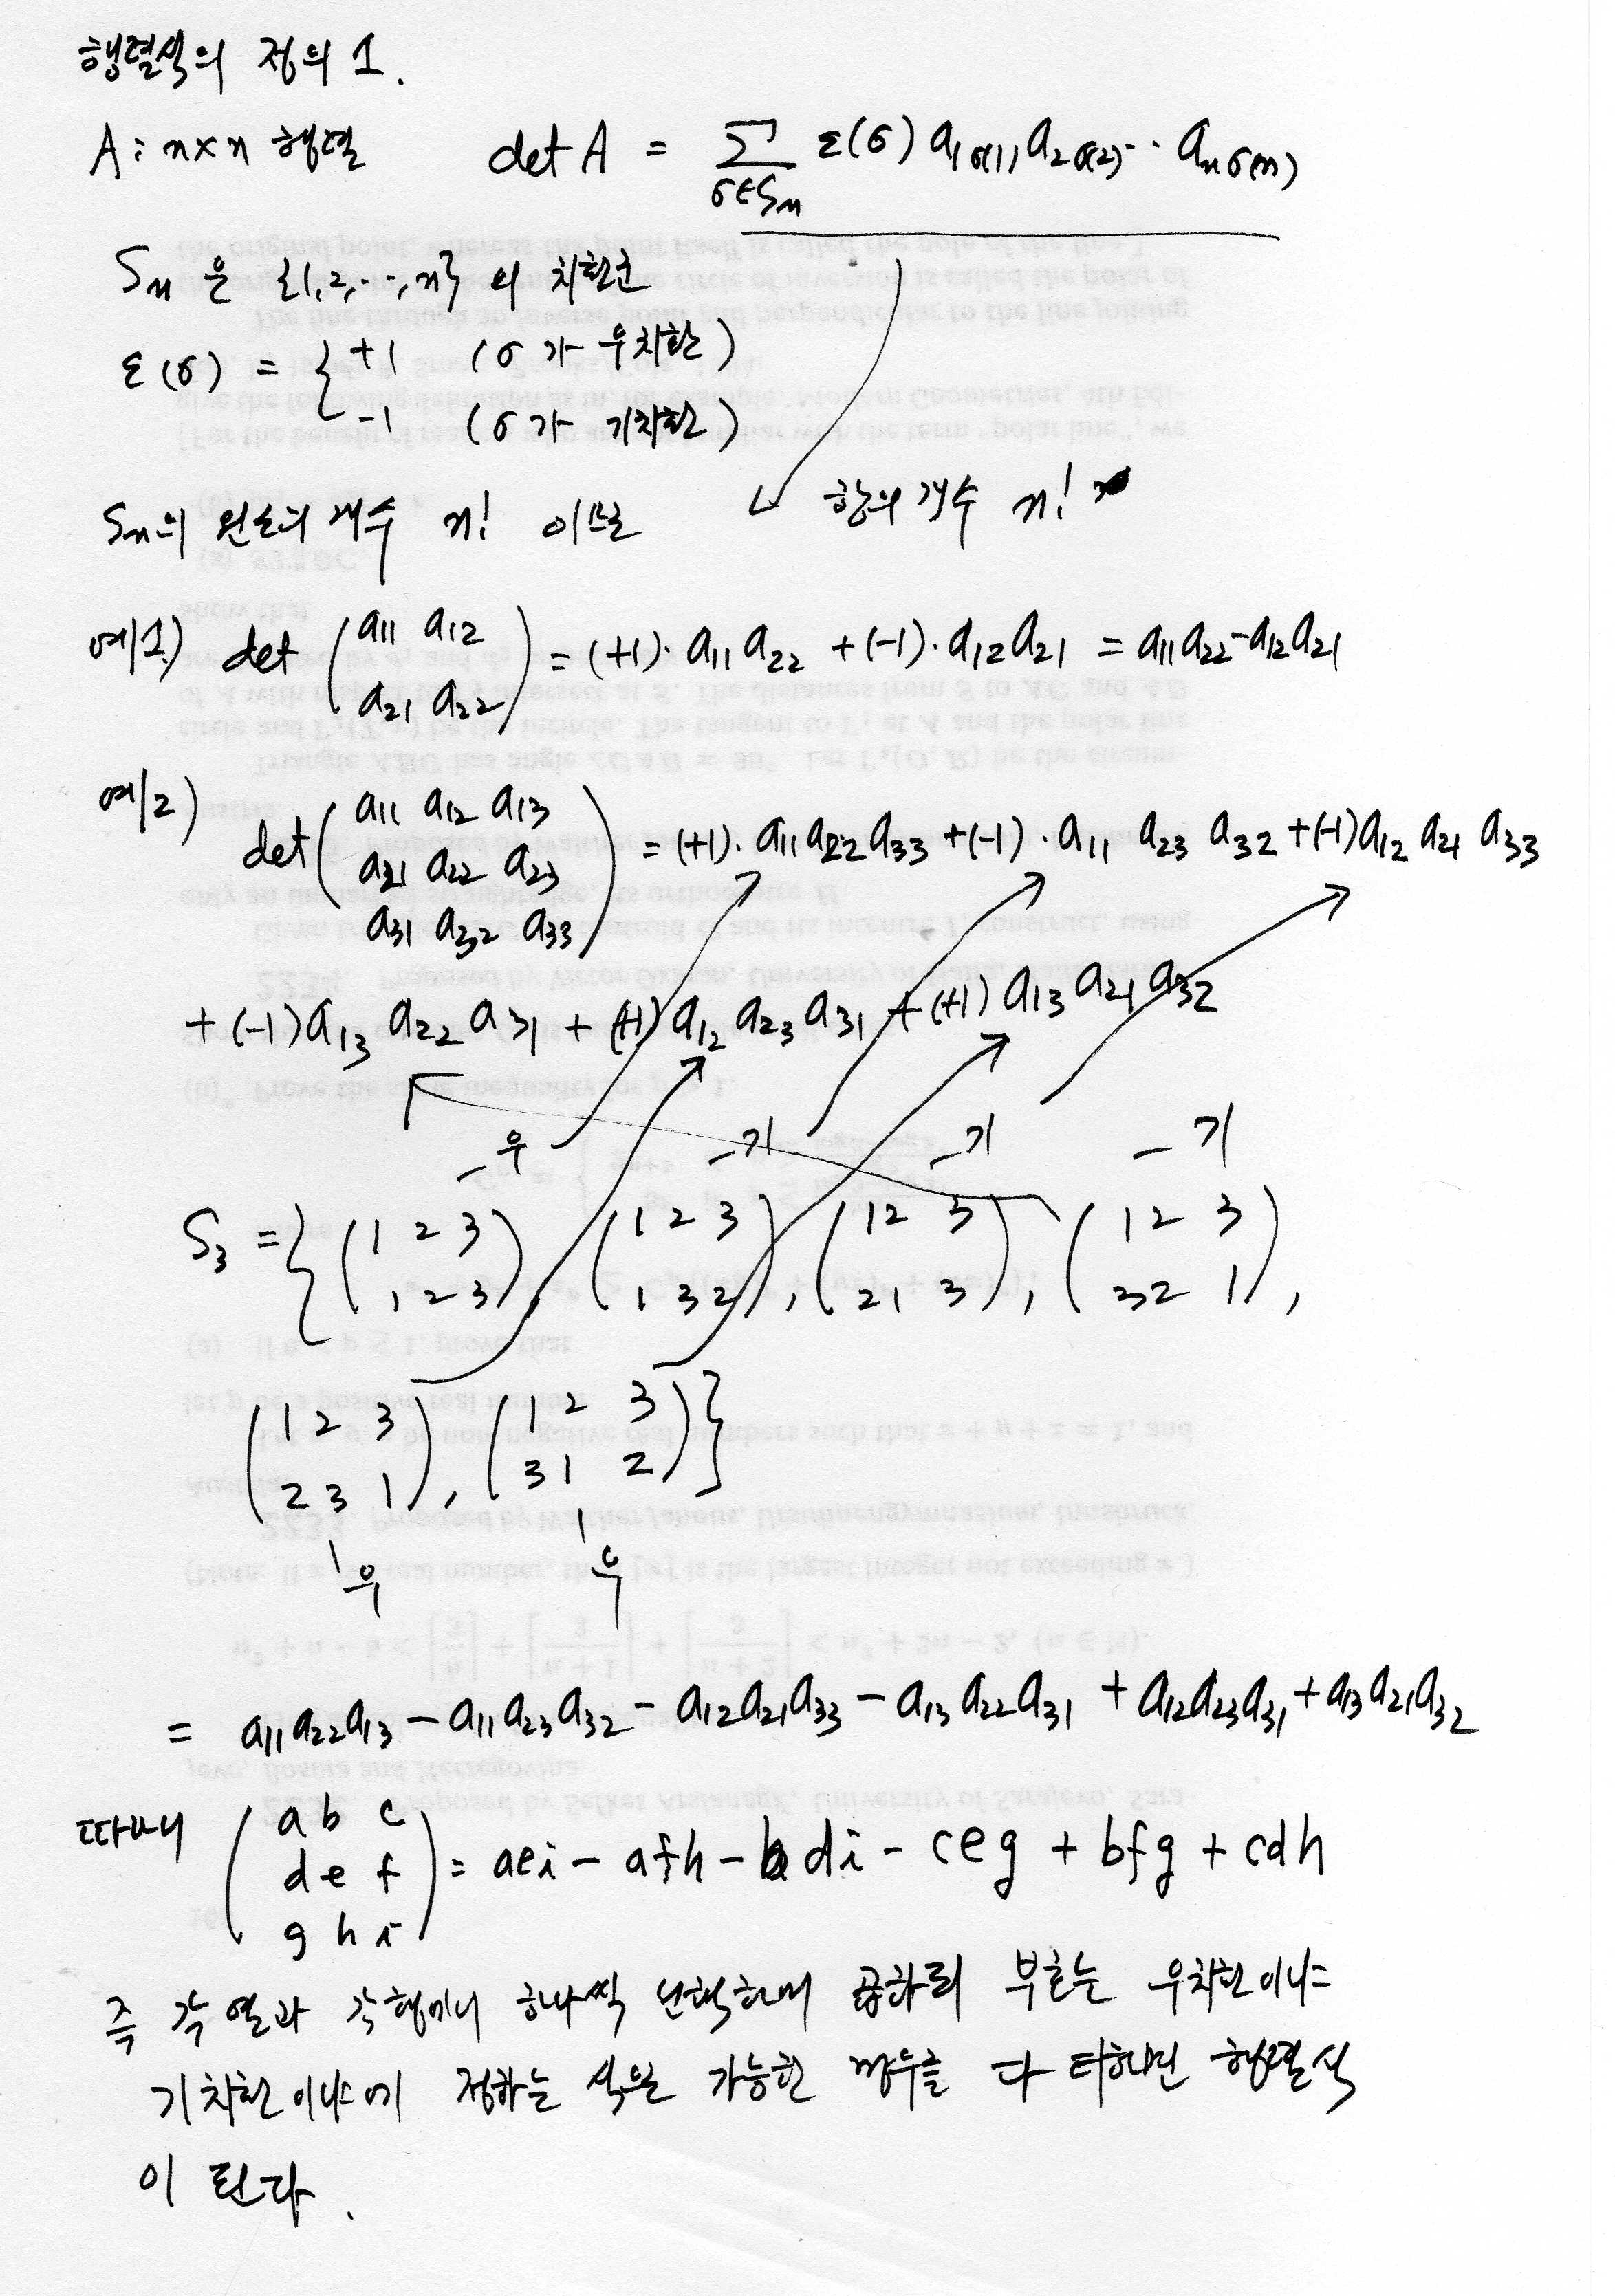 행렬식의 정의 1.
A: n×n 행렬 det A = Σ_{σ∈S_n} ε(σ) a_{1σ(1)} a_{2σ(2)} ⋯ a_{nσ(n)}
S_n 은 {1,2,⋯,n} 의 치환군
ε(σ) = { +1 (σ가 우치환)
-1 (σ가 기치환)
S_n의 원소의 개수 n! 이므로 항의 개수 n!
예1) det (a11 a12
a21 a22) = (+1)·a11 a22 + (-1)·a12 a21 = a11a22-a12a21
예2) det (a11 a12 a13
a21 a22 a23
a31 a32 a33) = (+1)·a11a22a33 + (-1)·a11 a23 a32 + (-1)a12 a21 a33
+ (-1)a13 a22 a31 + (+1)a12 a23 a31 + (+1) a13 a21 a32
우 기 기 기
S3 = { (1 2 3 (1 2 3 (1 2 3 (1 2 3
1 2 3), 1 3 2), 2 1 3), 3 2 1),
(1 2 3 (1 2 3
2 3 1), 3 1 2) }
우 우
= a11a22a13 - a11a23a32 - a12a21a33 - a13a22a31 + a12a23a31 + a13a21a32
따라서 (a b c
d e f
g h i) = aei - afh - bdi - ceg + bfg + cdh
즉 각 열과 각 행에서 하나씩 선택하여 곱하되 부호는 우치환이냐
기치환이냐에 정하는 식을 가능한 경우를 다 더하면 행렬식
이 된다.